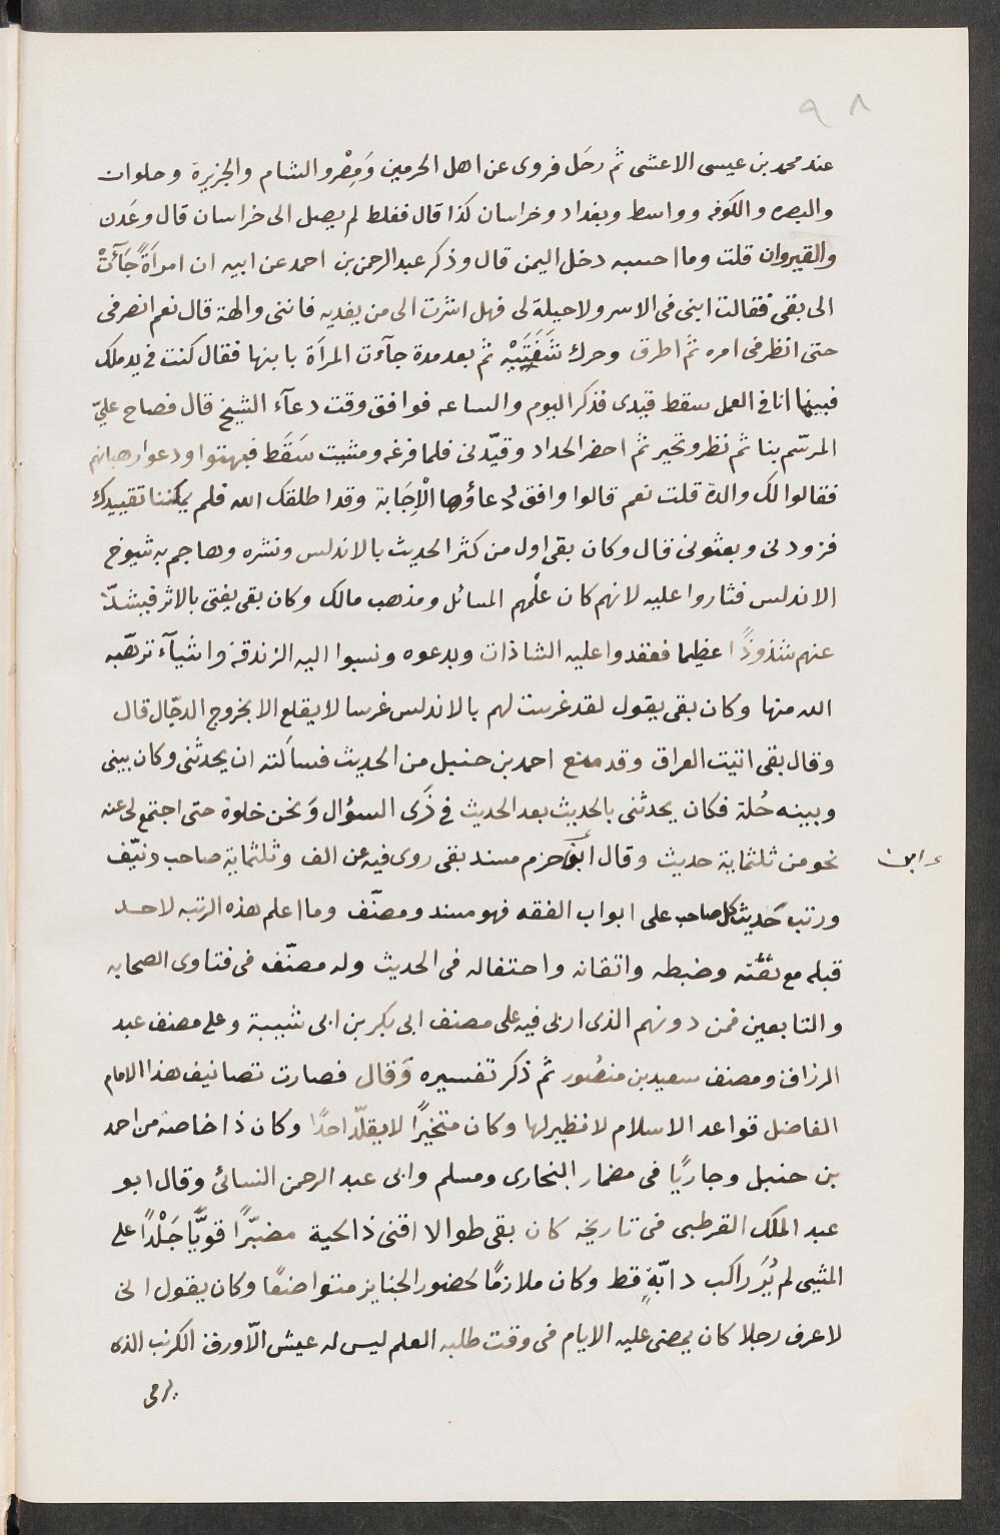 ٩٨
عند محمد بن عيسى الاعشى ثم رحَل فروى عن اهل الحرمين وَمِصْر والشام والجزيرة وحلوان
والبصره والكوفه وواسط وبغداد وخراسان كذا قال فغلط لم يصل الى خراسان قال وعَدن
والقيروان قلت وما احسبه دخل اليمن قال وذكر عبد الرحمن بن احمد عن ابيه ان امرَأةً جَآءَتْ
الى بقى فقالت ابنى فى الاسر ولا حيلة لى فهل اشرت الى من يفديه فاننى والهة قال نعم انصرفى
حتى انظر فى امره ثم اطرق وحرك شَفَتَيْه ثم بعد مدة جآءت المرأة بابنها فقال كنت فى يد ملك
فبينما انا فى العمل سقط قيدى فذكر اليوم والساعه فوافق وقت دعآء الشيخ قال فصاح علىّ
المرسّم بنا ثم نظر وتحير ثم احضر الحداد وقيّدنى فلما فرغه ومشيت سَقَط فبهتوا ودعوا رهبانهم
فقالوا لك والدة قلت نعم قالوا وافق دعاؤها الْاِجَابة وقد اطلقك الله فلم يمكننا تقييدك
فزودنى وبعثونى قال وكان بقى اول من كثر الحديث بالاندلس ونشره وهاجم به شيوخ
الاندلس فثاروا عليه لانهم كان علْمهم المسائل ومذهب مالك وكان بقى يفتى بالاثر فيشذّ
عنهم شذوذًا عظيما فعقدوا عليه الشاذات وبدعوه ونسبوا اليه الزندقة واشيآء نزهّه
الله منها وكان بقى يقول لقد غرست لهم بالاندلس غرسا لا يقلع الا بخروج الدجّال قال
وقال بقى اتيت العراق وقد منع احمد بن حنبل من الحديث فسألته ان يحدثنى وكان بينى
وبينه خُلة فكان يحدثنى بالحديث بعد الحديث فى ذَى السؤال وَنحن خلوة حتى اجتمع لى عنه
نحو من ثلثماية حديث وقال ابو حزم مسند بقى روى فيه عن الف وثلثماية صاحب ونيّف
ابن
ورتب حَديث كل صاحب على ابواب الفقه فهو مسند ومصنّف وما اعلم هذه الرتبه لاحد
قبله مع ثقته وضبطه واتقانه واحتفاله فى الحديث وله مصنّف فى فتاوى الصحابه
والتابعين فمن دونهم الذى اربى فيه على مصنف ابى بكر بن ابى شيبة وعلى مصنف عبد
الرزاق ومصنف سعيد بن منصُور ثم ذكر تفسيره وَقال فصارت تصانيف هذا الامام
الفاضل قواعد الاسلام لا نظير لها وكان متخيرًا لا يقلّد احدًا وكان ذا خاصة من احمد
بن حنبل وجاريًا فى مضمار البخارى ومسلم وابى عبد الرحمن النسائى وقال ابو
عبد الملك القرطبى فى تاريخه كان بقى طوالا اقنى ذا لحية مضبّرًا قويًّا جَلْدًا على
المشيى لم يُرَ راكب دابّةٍ قط وكان ملازمًا لحضور الجنايز متواضعًا وكان يقول انى
لاعرف رجلا كان يمضى عليه الايام فى وقت طلبه العلم ليس له عيش الّا ورق الكرنب الذى
يرمى